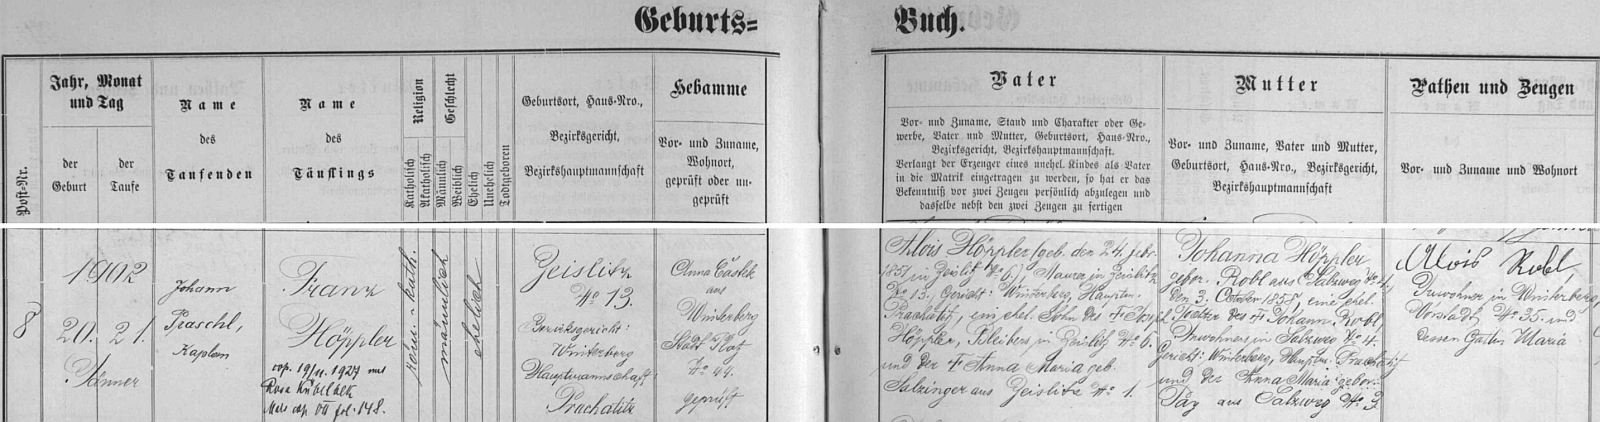 Geburts=
Buch.
Post-Nr.
Jahr, Monat
und Tag
der
Geburt
der
Taufe
Name
des
Taufenden
Name
des
Täuflings
Religion
Katholisch
Akatholisch
Geschlecht
Männlich
Weiblich
Ehelich
Unehelich
Todtgeboren
Geburtsort, Haus-Nro.,
Bezirksgericht,
Bezirkshauptmannschaft
Hebamme
Vor- und Zuname,
Wohnort,
geprüft oder un-
geprüft
Vater
Vor- und Zuname, Stand und Charakter oder Ge-
werbe, Vater und Mutter, Geburtsort, Haus-Nro.,
Bezirksgericht, Bezirkshauptmannschaft.
Verlangt der Erzeuger eines unehel. Kindes als Vater
in die Matrik eingetragen zu werden, so hat er das
Bekenntniß vor zwei Zeugen persönlich abzulegen und
dasselbe nebst den zwei Zeugen zu fertigen
Mutter
Vor- und Zuname, Vater und Mutter,
Geburtsort, Haus-Nro., Bezirksgericht,
Bezirkshauptmannschaft
Pathen und Zeugen
Vor- und Zuname und Wohnort
8
1902
20. 21.
Jänner
Johann
Praschl,
Kaplan
Franz
Höppler
cop. 19/11. 1927 mit
Rosa
fol. 148.
röm.-kath.
männlich
ehelich
Geislitz
No 13.
Bezirksgericht:
Winterberg
Hauptmannschaft:
Prachatitz
Anna
aus
Winterberg
Stadt Platz
No 49.
geprüft
Alois Höppler (geb. den 24. Febr.
1851 in Geislitz No 6), Maurer in Geislitz
No 13, Gericht: Winterberg, Hauptm.
Prachatitz, ein ehel. Sohn des † Josef
Höppler, Kleibers in Geislitz No 6.
und der † Anna Maria geb.
Salzinger aus Geislitz No 1.
Johanna Höppler
gebor. Robl aus Salzweg No 4,
den 3. October 1858, eine ehel.
Tochter des † Johann Robl,
Inwohners in Salzweg No 4.
Gericht: Winterberg, Hauptm. Prachatitz
und der Anna Maria gebor.
aus Salzweg No 3
Alois Robl,
Inwohner in Winterberg,
Vorstadt No 35. und
dessen Gattin Maria